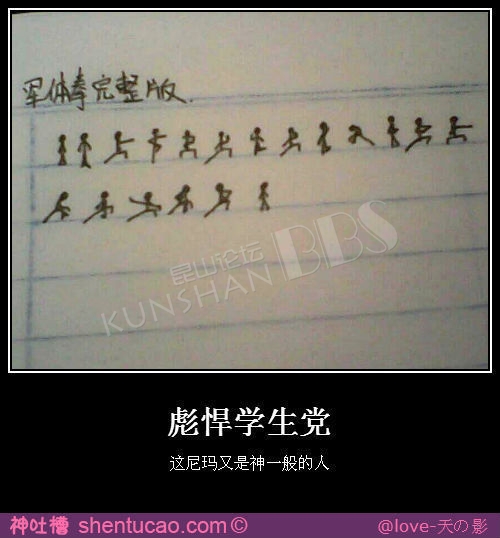 军体拳完整版
昆山论坛
KUNSHAN BBS
彪悍学生党
这尼玛又是神一般的人
神吐槽 shentucao.com©
@love-天の影